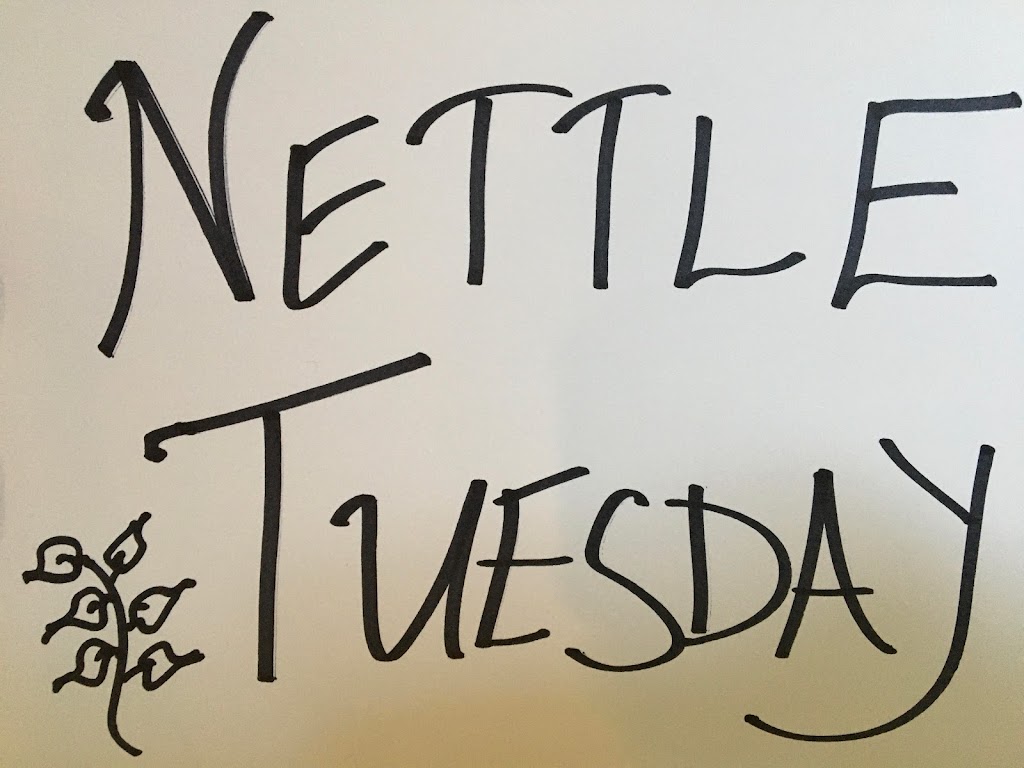 NETTLE
TUESDAY